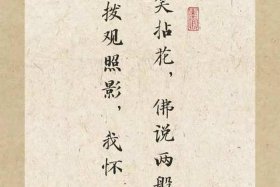 笑拈花，佛说两般
拨观照影，我怀